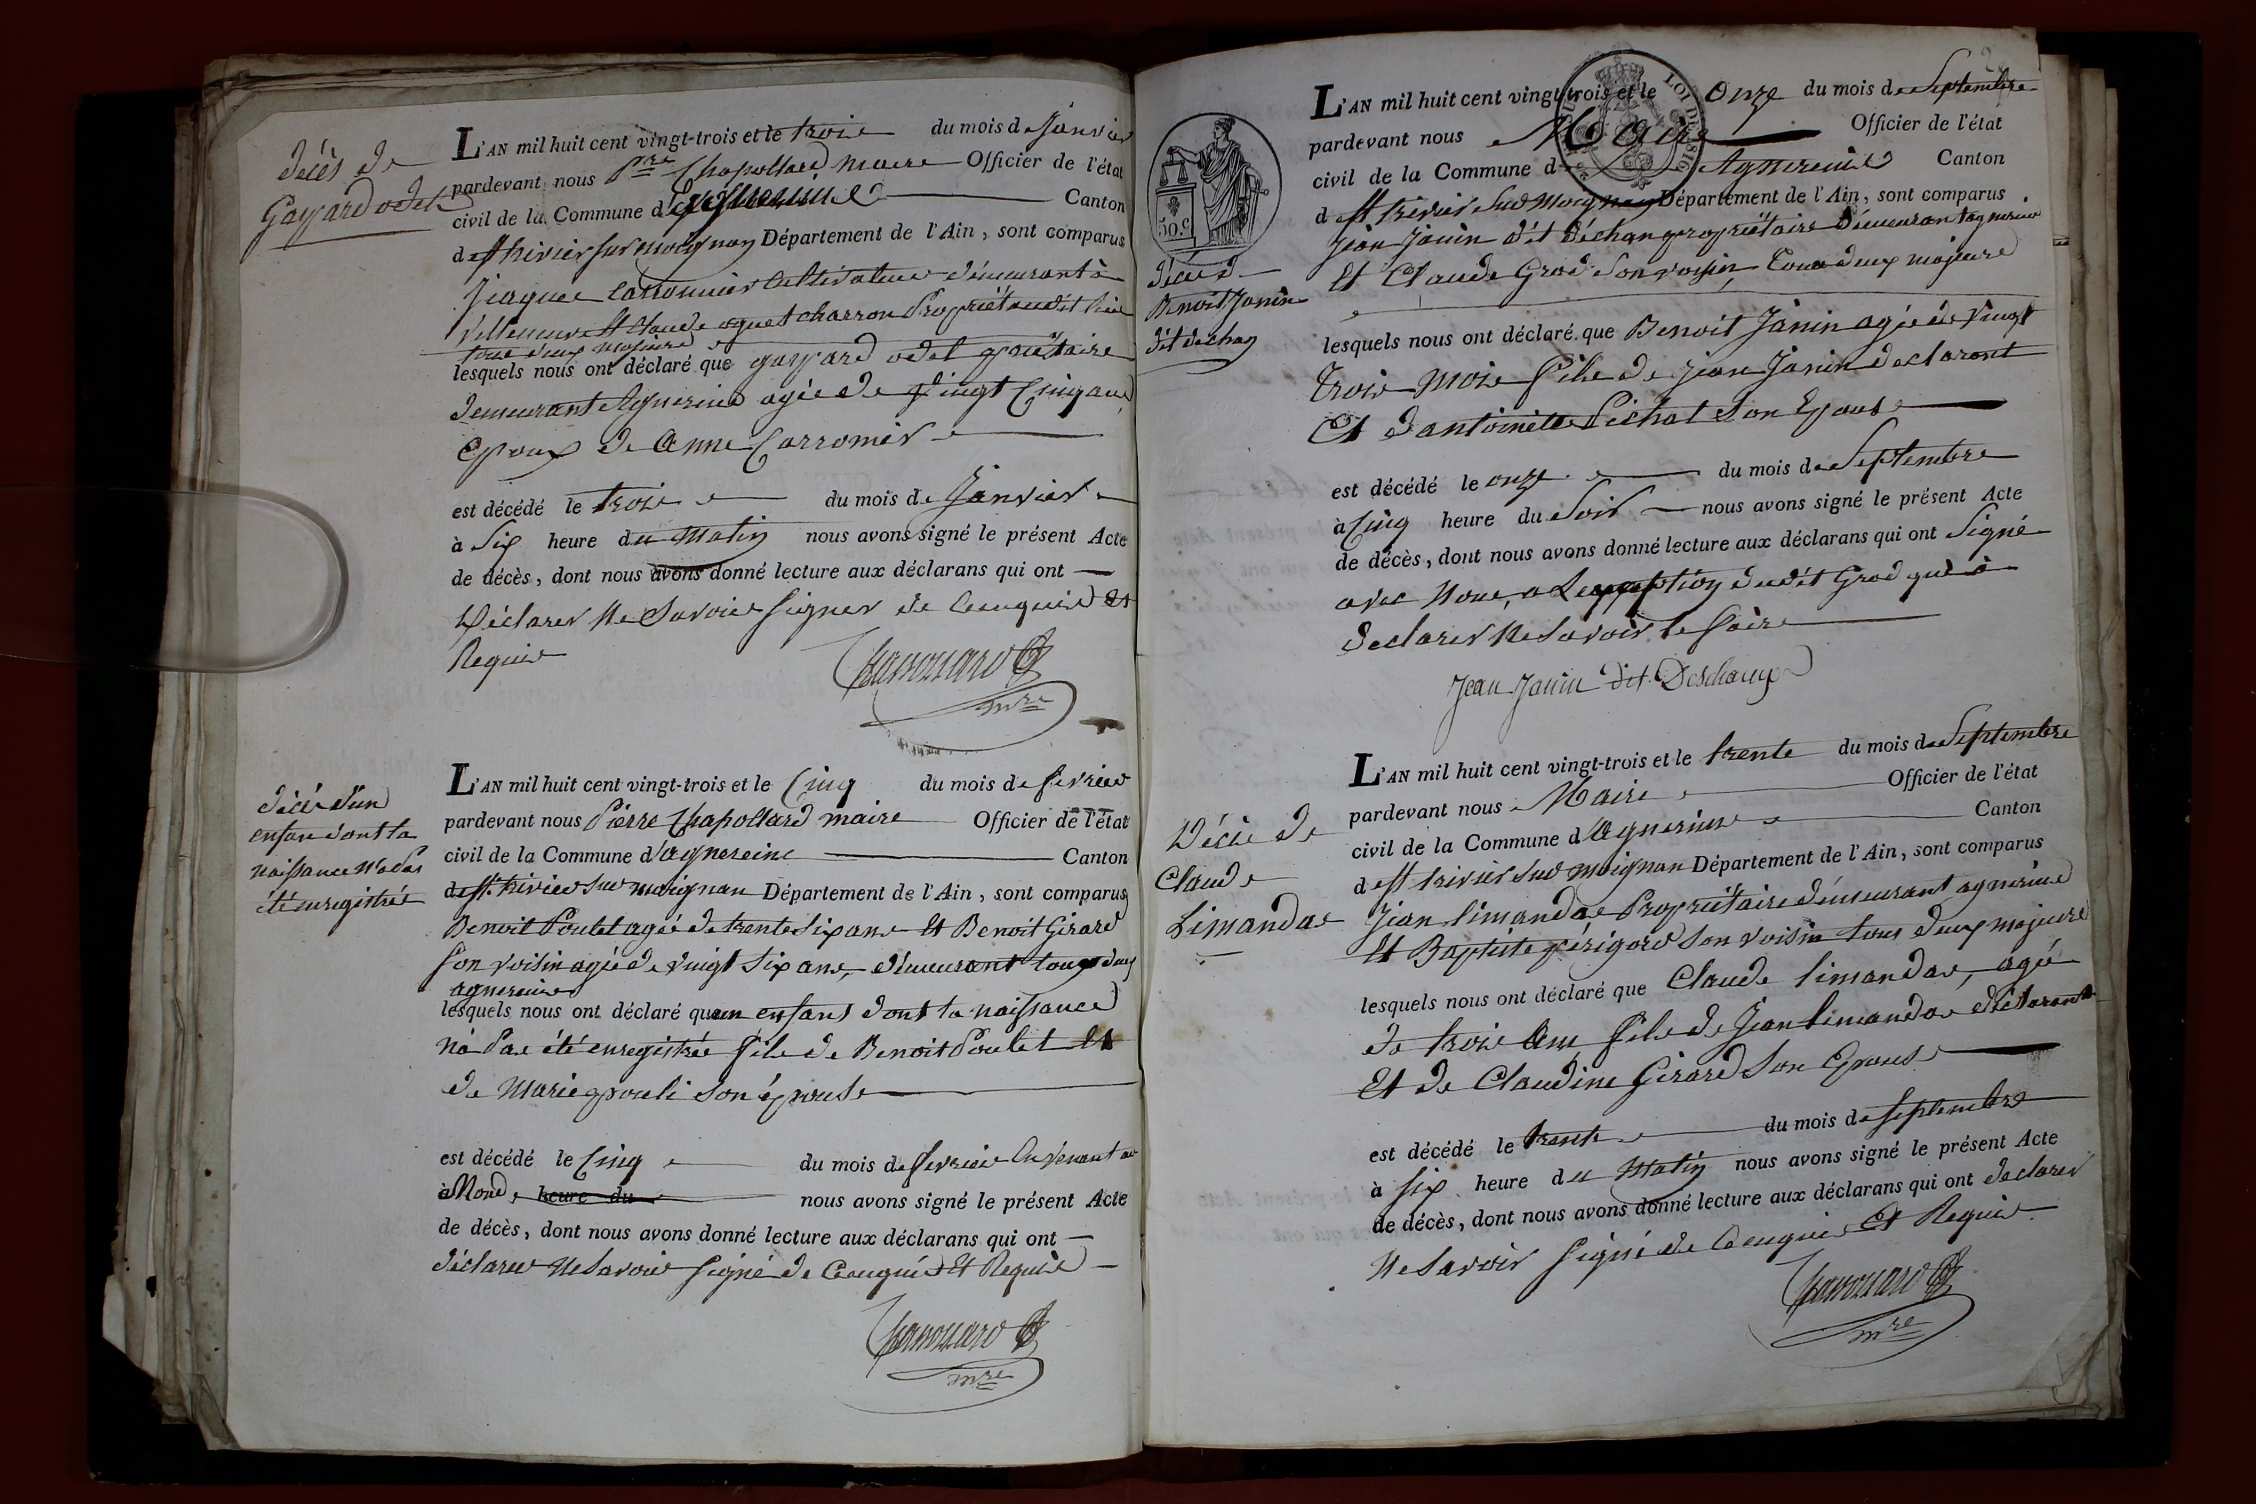 décès de
Gaspard odet
L'AN mil huit cent vingt-trois et le trois du mois de Janvier
pardevant nous Pre Chapollard maire Officier de l'état
civil de la Commune d' Canton
de St trivier sur moignan Département de l'Ain, sont comparus
Jiaque Carronnier Cultivateur démeurant à
Villeneuve et Claude oguet charron Propriétaire
tous deux majeure
lesquels nous ont déclaré que gaspard odet
demeurant Agnerins agée de Vingt Cinq ans
Epoux de Anne Carronier
est décédé le trois du mois de Janvier
à Six heure du Matin nous avons signé le présent Acte
de décès, dont nous avons donné lecture aux déclarans qui ont
Déclarer Ne Savoir Signer de Ceenquis Et
Requis
Chapollard
mre
décè d'un
enfan dont la
naissance N'a Pas
été enregistrée
L'AN mil huit cent vingt-trois et le Cinq du mois de fevrier
pardevant nous Pierre Chapollard maire Officier de l'état
civil de la Commune d'agnereins Canton
de St. trivier sur moignan Département de l'Ain, sont comparus
Benoit Poulet agée de trente Six ans Et Benoit Girard
Son voisin agée de vingt Six ans, démeurant tous deux
agnereins
lesquels nous ont déclaré quun enfans dont la naissance
na Pas été enregistrée fils de Benoit Poulet Et
de Marie son épouse
est décédé le Cinq du mois de fevrier En Venant au
à Mond, heure du nous avons signé le présent Acte
de décès, dont nous avons donné lecture aux déclarans qui ont
déclarer Ne Savoir Signé de Ceenquis Et Requis
Chapollard
mre
LOI DE 1816
50.c
décè d
Benoit Janin
dit dechan
L'AN mil huit cent vingt-trois et le Onze du mois de Septembre
pardevant nous Maire Officier de l'état
civil de la Commune d Agnereins Canton
de St trivier Sur Moignan Département de l'Ain, sont comparus
Jean Janin dit déchan propriétaire Démeurant agnerins
Et Claude Grod Son voisin Tous deux majeure
lesquels nous ont déclaré que Benoit Janin agée de Vingt
trois Mois fils de Jean Janin declarant
Et d'antoinette Pichat Son Epouse
est décédé le onze du mois de Septembre
à Cinq heure du Soir nous avons signé le présent Acte
de décès, dont nous avons donné lecture aux déclarans qui ont Signé
avec Nous, a Lexception dudit Grod qui à
declarer Ne Savoir le faire
Jean Janin dit Deschamp
Décè de
Claude
Limandas
L'AN mil huit cent vingt-trois et le trente du mois de Septembre
pardevant nous Maire Officier de l'état
civil de la Commune d'Agnerins Canton
de St trivier Sur moignan Département de l'Ain, sont comparus
Jean limandas Propriétaire démeurant agnerins
Et Baptiste périgord Son voisin tous deux majeure
lesquels nous ont déclaré que Claude limandas, agé
de trois Ans fils de Jean limandas déclarant
Et de Claudine Girard Son Epouse
est décédé le trente du mois de Septembre
à Six heure du Matin nous avons signé le présent Acte
de décès, dont nous avons donné lecture aux déclarans qui ont declarer
Ne Savoir Signé de Ceenquis Et Requis
Chapollard
mre